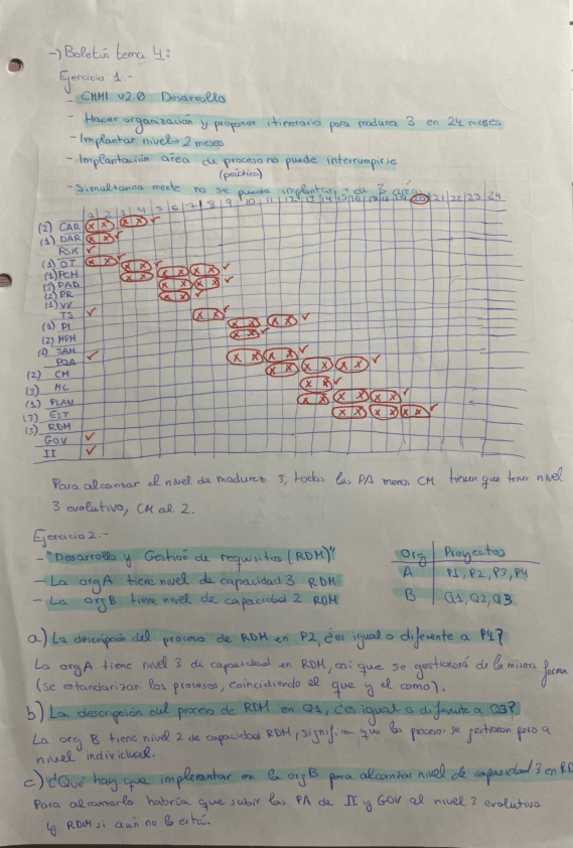 → Boletín tema 4:
Ejercicio 1.-
- CMMI v2.0 Desarrollo
- Hacer organización y proponer itinerario para madurez 3 en 24 meses
- Implantar nivel: 2 meses
- Implantación área de proceso no puede interrumpirse
(práctica)
- Simultaneamente no se pueden implantar + de 3 áreas
1 2 3 4 5 6 7 8 9 10 11 12 13 14 15 16 17 18 19 20 21 22 23 24
(2) CAR x x x x ✓
(1) DAR x x ✓
RSK ✓
(1) OT x x ✓
(1) PCM x x x x x x ✓
(3) PAD x x x x ✓
(2) PR x x ✓
(1) VV x x ✓
TS ✓
(1) PI x x x x ✓
(2) MPM x x ✓
(1) SAM x x x x ✓
PQA ✓
(2) CM x x x x x x ✓
(3) MC x x ✓
(1) PLAN x x x x x x ✓
(3) EST x x x x x x ✓
(3) RDM
GOV ✓
II ✓
Para alcanzar el nivel de madurez 3, todas las PA menos CM tienen que tener nivel
3 evolutivo, CM al 2.
Ejercicio 2.-
- "Desarrollo y Gestión de requisitos (RDM)"
- La orgA tiene nivel de capacidad 3 RDM
- La orgB tiene nivel de capacidad 2 RDM
Org | Proyectos
A | P1, P2, P3, P4
B | Q1, Q2, Q3
a) La descripción del proceso de RDM en P2, ¿es igual o diferente a P4?
La orgA tiene nivel 3 de capacidad en RDM, así que se gestionará de la misma forma
(se estandarizan los procesos, coincidiendo el que y el como).
b) La descripción del proceso de RDM en Q1, ¿es igual o diferente a Q3?
La org B tiene nivel 2 de capacidad RDM, significa que los procesos se gestionan pero a
nivel individual.
c) ¿Qué hay que implementar en la orgB para alcanzar nivel de capacidad 3 en RD
Para alcanzarlo habría que subir las PA de II y GOV al nivel 3 evolutivo
y RDM si aún no lo está.